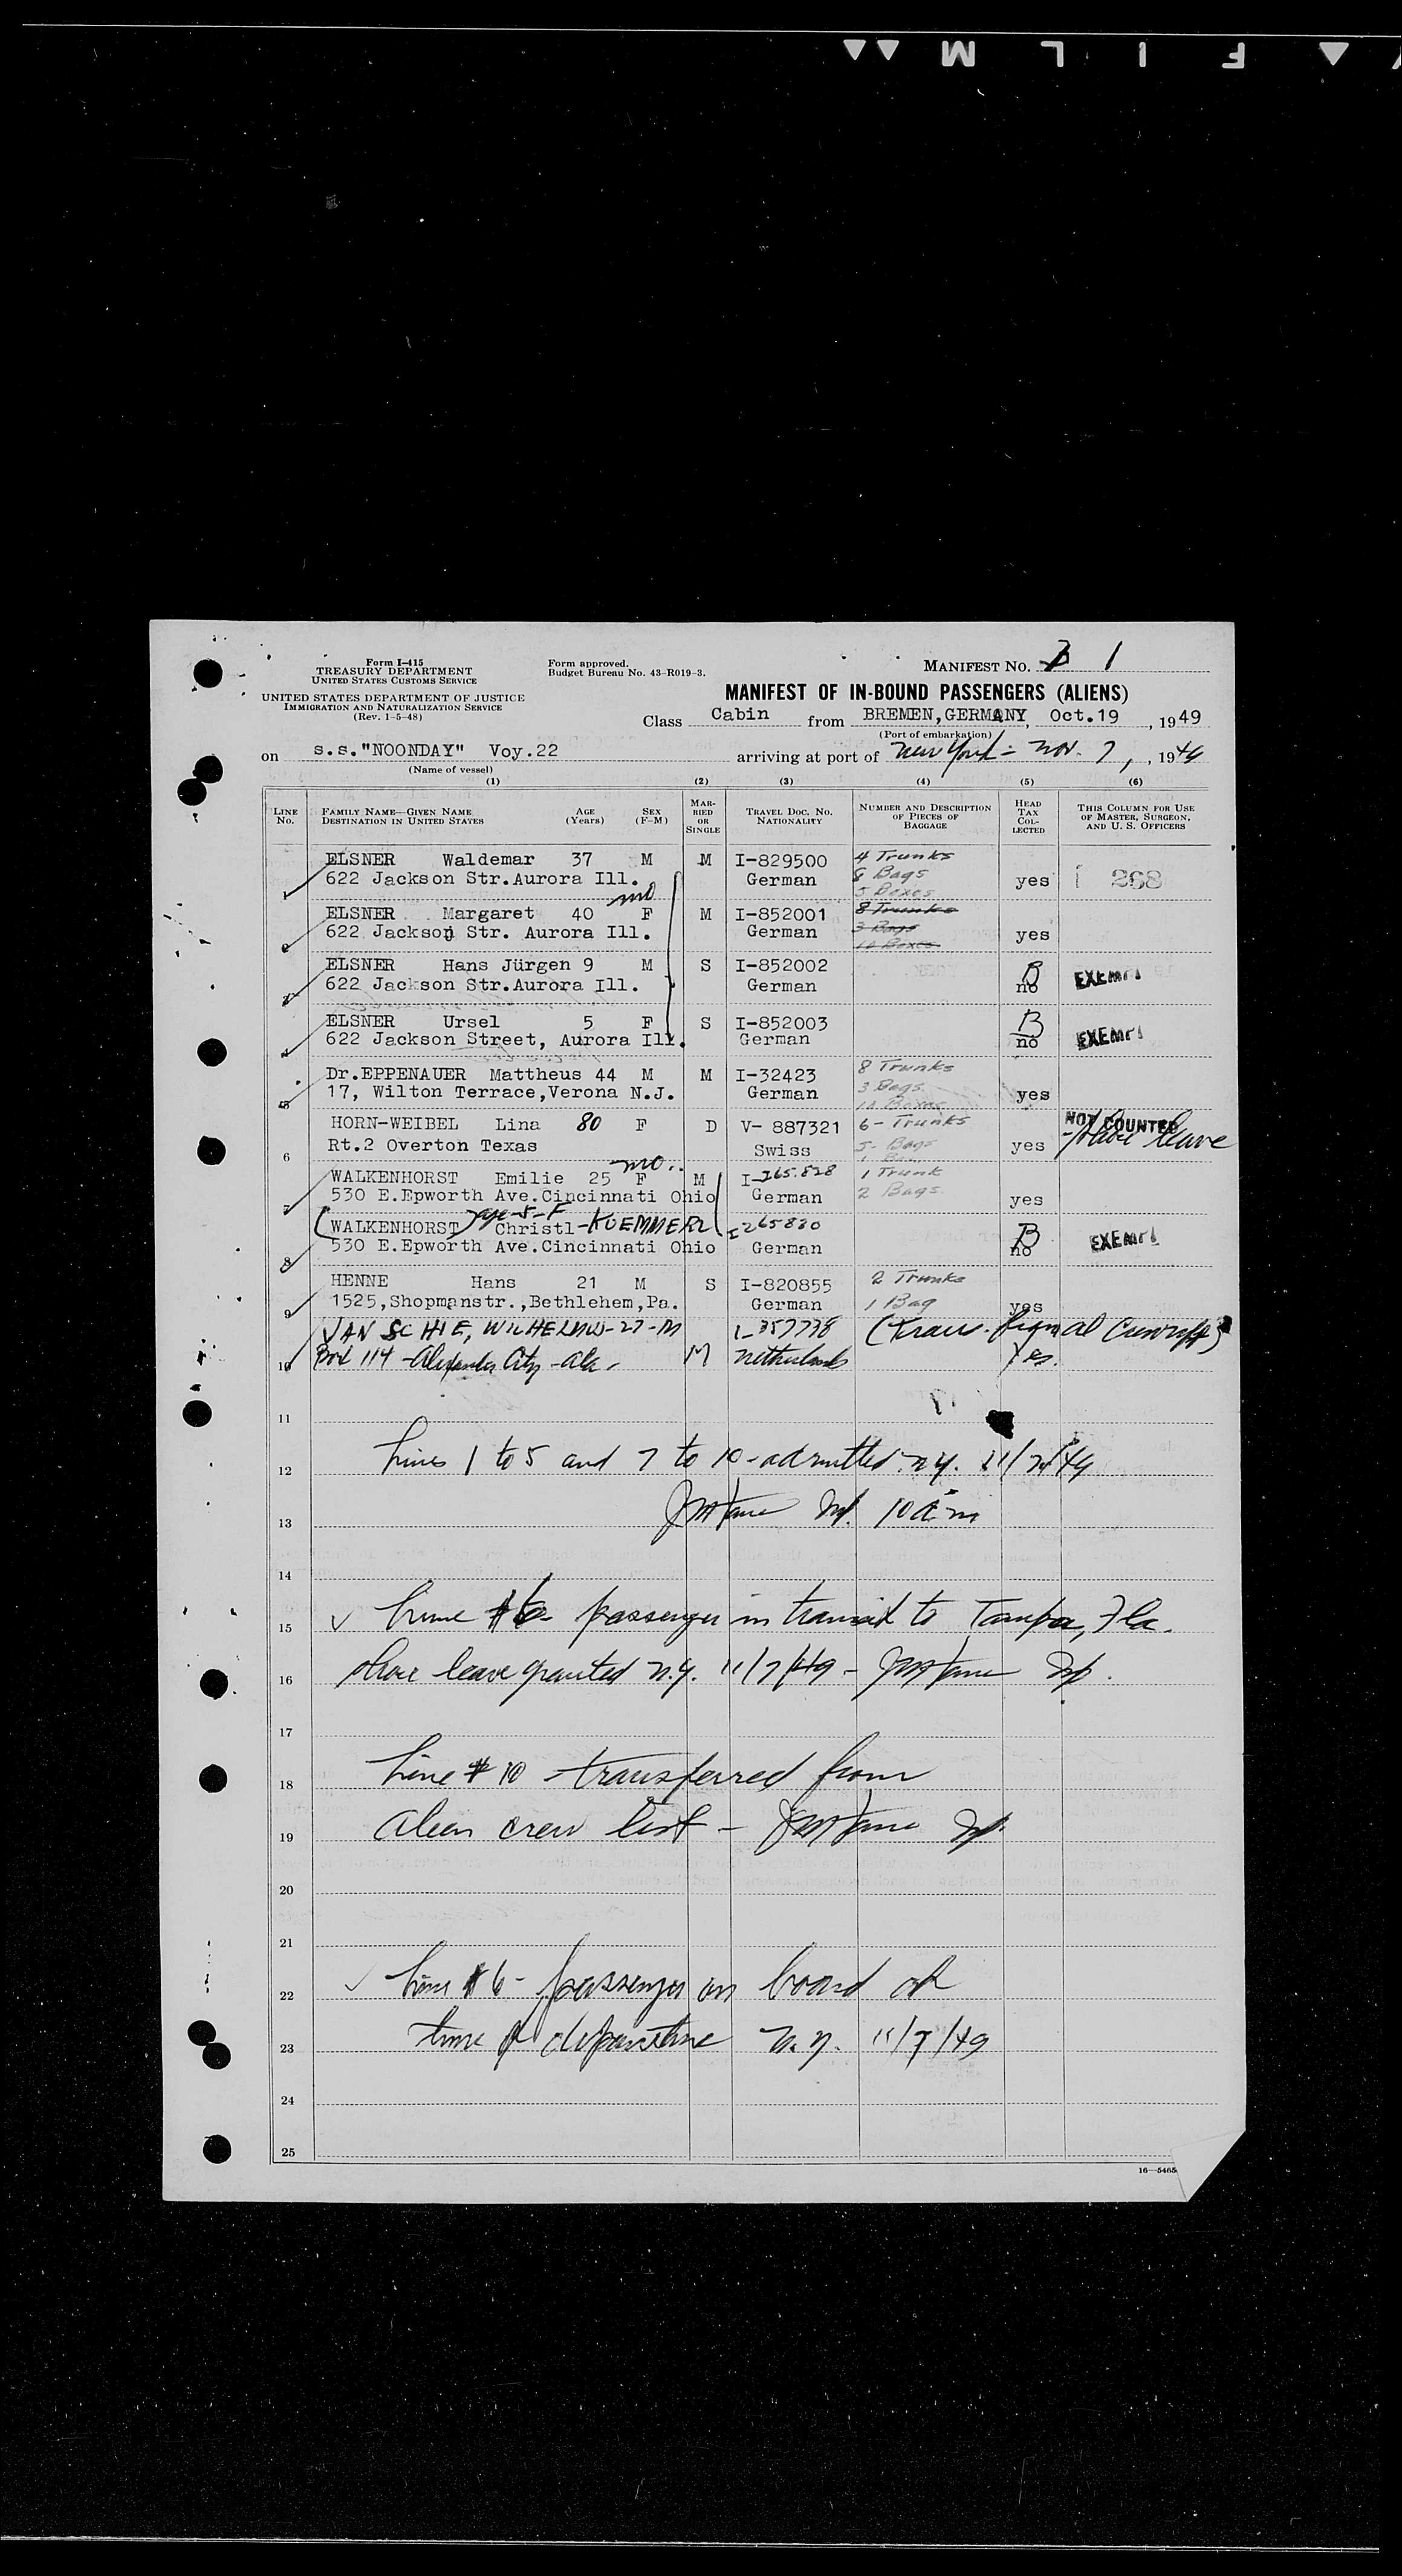 FILM
Form I-415
TREASURY DEPARTMENT
UNITED STATES CUSTOMS SERVICE
UNITED STATES DEPARTMENT OF JUSTICE
IMMIGRATION AND NATURALIZATION SERVICE
(Rev. 1-5-48)
Form approved.
Budget Bureau No. 43-R019-3.
MANIFEST NO. 1
MANIFEST OF IN-BOUND PASSENGERS (ALIENS)
Class Cabin from BREMEN, GERMANY, Oct.19, 1949
(Port of embarkation)
on s.s."NOONDAY" Voy.22 arriving at port of New York - Nov. 7, 1949
(Name of vessel)
(1) (2) (3) (4) (5) (6)
LINE No. FAMILY NAME—GIVEN NAME DESTINATION IN UNITED STATES AGE (Years) SEX (F-M) MARRIED OR SINGLE TRAVEL DOC. NO. NATIONALITY NUMBER AND DESCRIPTION OF PIECES OF BAGGAGE HEAD TAX COLLECTED THIS COLUMN FOR USE OF MASTER, SURGEON, AND U. S. OFFICERS
1 ELSNER Waldemar 37 M M I-829500 4 Trunks
622 Jackson Str.Aurora Ill. German 8 Bags yes 268
5 Boxes
mo
2 ELSNER Margaret 40 F M I-852001 8 Trunks
622 Jackson Str. Aurora Ill. German 3 Bags yes
10 Boxes
3 ELSNER Hans Jürgen 9 M S I-852002 B EXEMPT
622 Jackson Str.Aurora Ill. German no
4 ELSNER Ursel 5 F S I-852003 B EXEMPT
622 Jackson Street, Aurora Ill. German no
5 Dr.EPPENAUER Mattheus 44 M M I-32423 8 Trunks
17, Wilton Terrace,Verona N.J. German 3 Bags yes
10 Boxes
6 HORN-WEIBEL Lina 80 F D V- 887321 6 - Trunks NOT COUNTED
Rt.2 Overton Texas Swiss 5 - Bags yes - shore leave
mo..
7 WALKENHORST Emilie 25 F M I-265.828 1 Trunk
530 E.Epworth Ave.Cincinnati Ohio German 2 Bags yes
age-5-F
8 (WALKENHORST) Christl - KUEMMERL I-265830 B EXEMPT
530 E.Epworth Ave.Cincinnati Ohio German no
9 HENNE Hans 21 M S I-820855 2 Trunks
1525,Shopmanstr.,Bethlehem,Pa. German 1 Bag yes
10 VAN SCHIE, WILHELMUS-27-M I-357738
Box 114 - Alexander City - Ala. M Netherlands Yes.
11
12 Lines 1 to 5 and 7 to 10 - admitted N.Y. 11/7/49
13 10 a.m
14
15 Line #6 - passenger in transit to Tampa, Fla.
16 shore leave granted N.Y. 11/7/49 -
17
18 Line # 10 - transferred from
19 alien crew list -
20
21
22 Line #6 - passenger on board at
23 time of departure N.Y. 11/7/49
24
25
16—5465